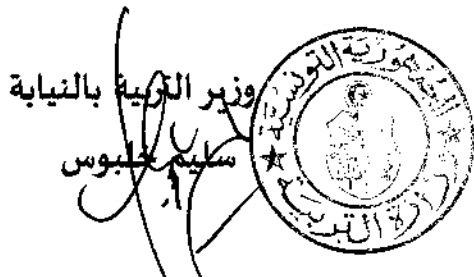 وزير التربية بالنيابة
سليم خلبوس
الجمهورية التونسية
وزارة التربية